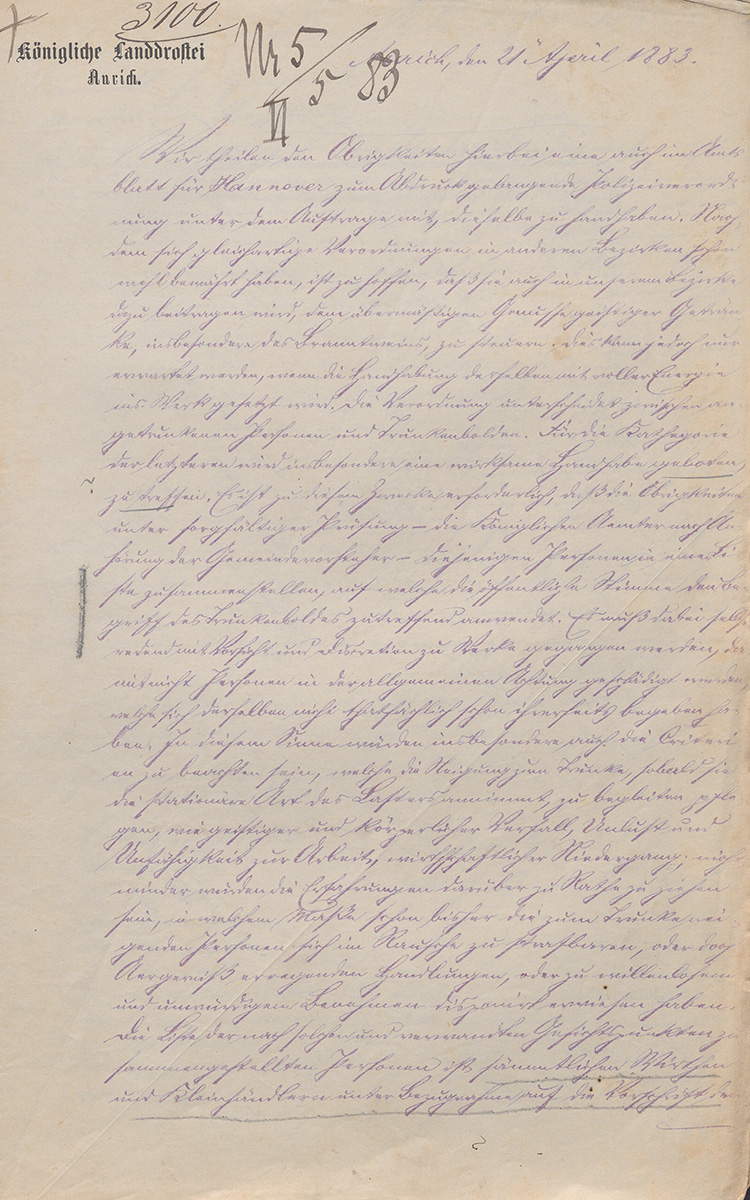 3100.
Königliche Landdrostei
Aurich.
Nr 5/5 83
II
Aurich, den 21 April 1883.
Wir theilen den Obrigkeiten hierbei eine auch im Amts
blatt für Hannover zum Abdruck gelangende Polizeiverord¬
nung unter dem Auftrage mit, dieselbe zu handhaben. Nach
dem sich gleichartige Verordnungen in anderen Bezirken schon
wohl bewährt haben, ist zu hoffen, daß sie auch in unserem Bezirke
dazu beitragen wird, dem übermäßigen Genusse geistiger Geträn
ke, insbesondere des Branntweins, zu steuern. Dies kann jedoch nur
erwartet werden, wenn die Handhabung derselben mit voller Energie
ins Werk gesetzt wird. Die Verordnung unterscheidet zwischen an¬
getrunkenen Personen und Trunkenbolden. Für die Kathegorie
der letzteren wird insbesondere eine wirksame Handhabe geboten,
zu treffen. Es ist zu diesem Zwecke erforderlich, daß die Obrigkeiten
unter sorgfältiger Prüfung – die Königlichen Aemter nach An
hörung der Gemeindevorsteher – diejenigen Personen in eine Li
ste zusammenstellen, auf welche die öffentliche Stimme den Be
griff des Trunkenboldes zutreffend anwendet. Es muß dabei selbst
redend mit Vorsicht und Discretion zu Werke gegangen werden, da
mit nicht Personen in der allgemeinen Achtung geschädigt werden,
welche sich derselben nicht thatsächlich schon ihrerseits begeben ha¬
ben. In diesem Sinne würden insbesondere auch die Criteri
en zu beachten sein, welche die Neigung zum Trunke, sobald sie
die stationäre Art des Lasters annimmt, zu begleiten pfle
gen, wie geistiger und körperlicher Verfall, Unlust und
Unfähigkeit zur Arbeit, wirthschaftlicher Niedergang; nicht
minder würden die Erfahrungen darüber zu Rathe zu ziehen
sein, in welchem Maße schon bisher die zum Trunke nei¬
genden Personen sich im Rausche zu strafbaren, oder doch
Aergerniß erregenden Handlungen, oder zu willenlosem
und unwürdigem Benehmen disponirt erwiesen haben.
Die Liste der nach solchen und verwandten Gesichtspunkten zu
sammengestellten Personen ist sämmtlichen Wirthen
und Kleinhändlern unter Bezugnahme auf die Vorschrift des